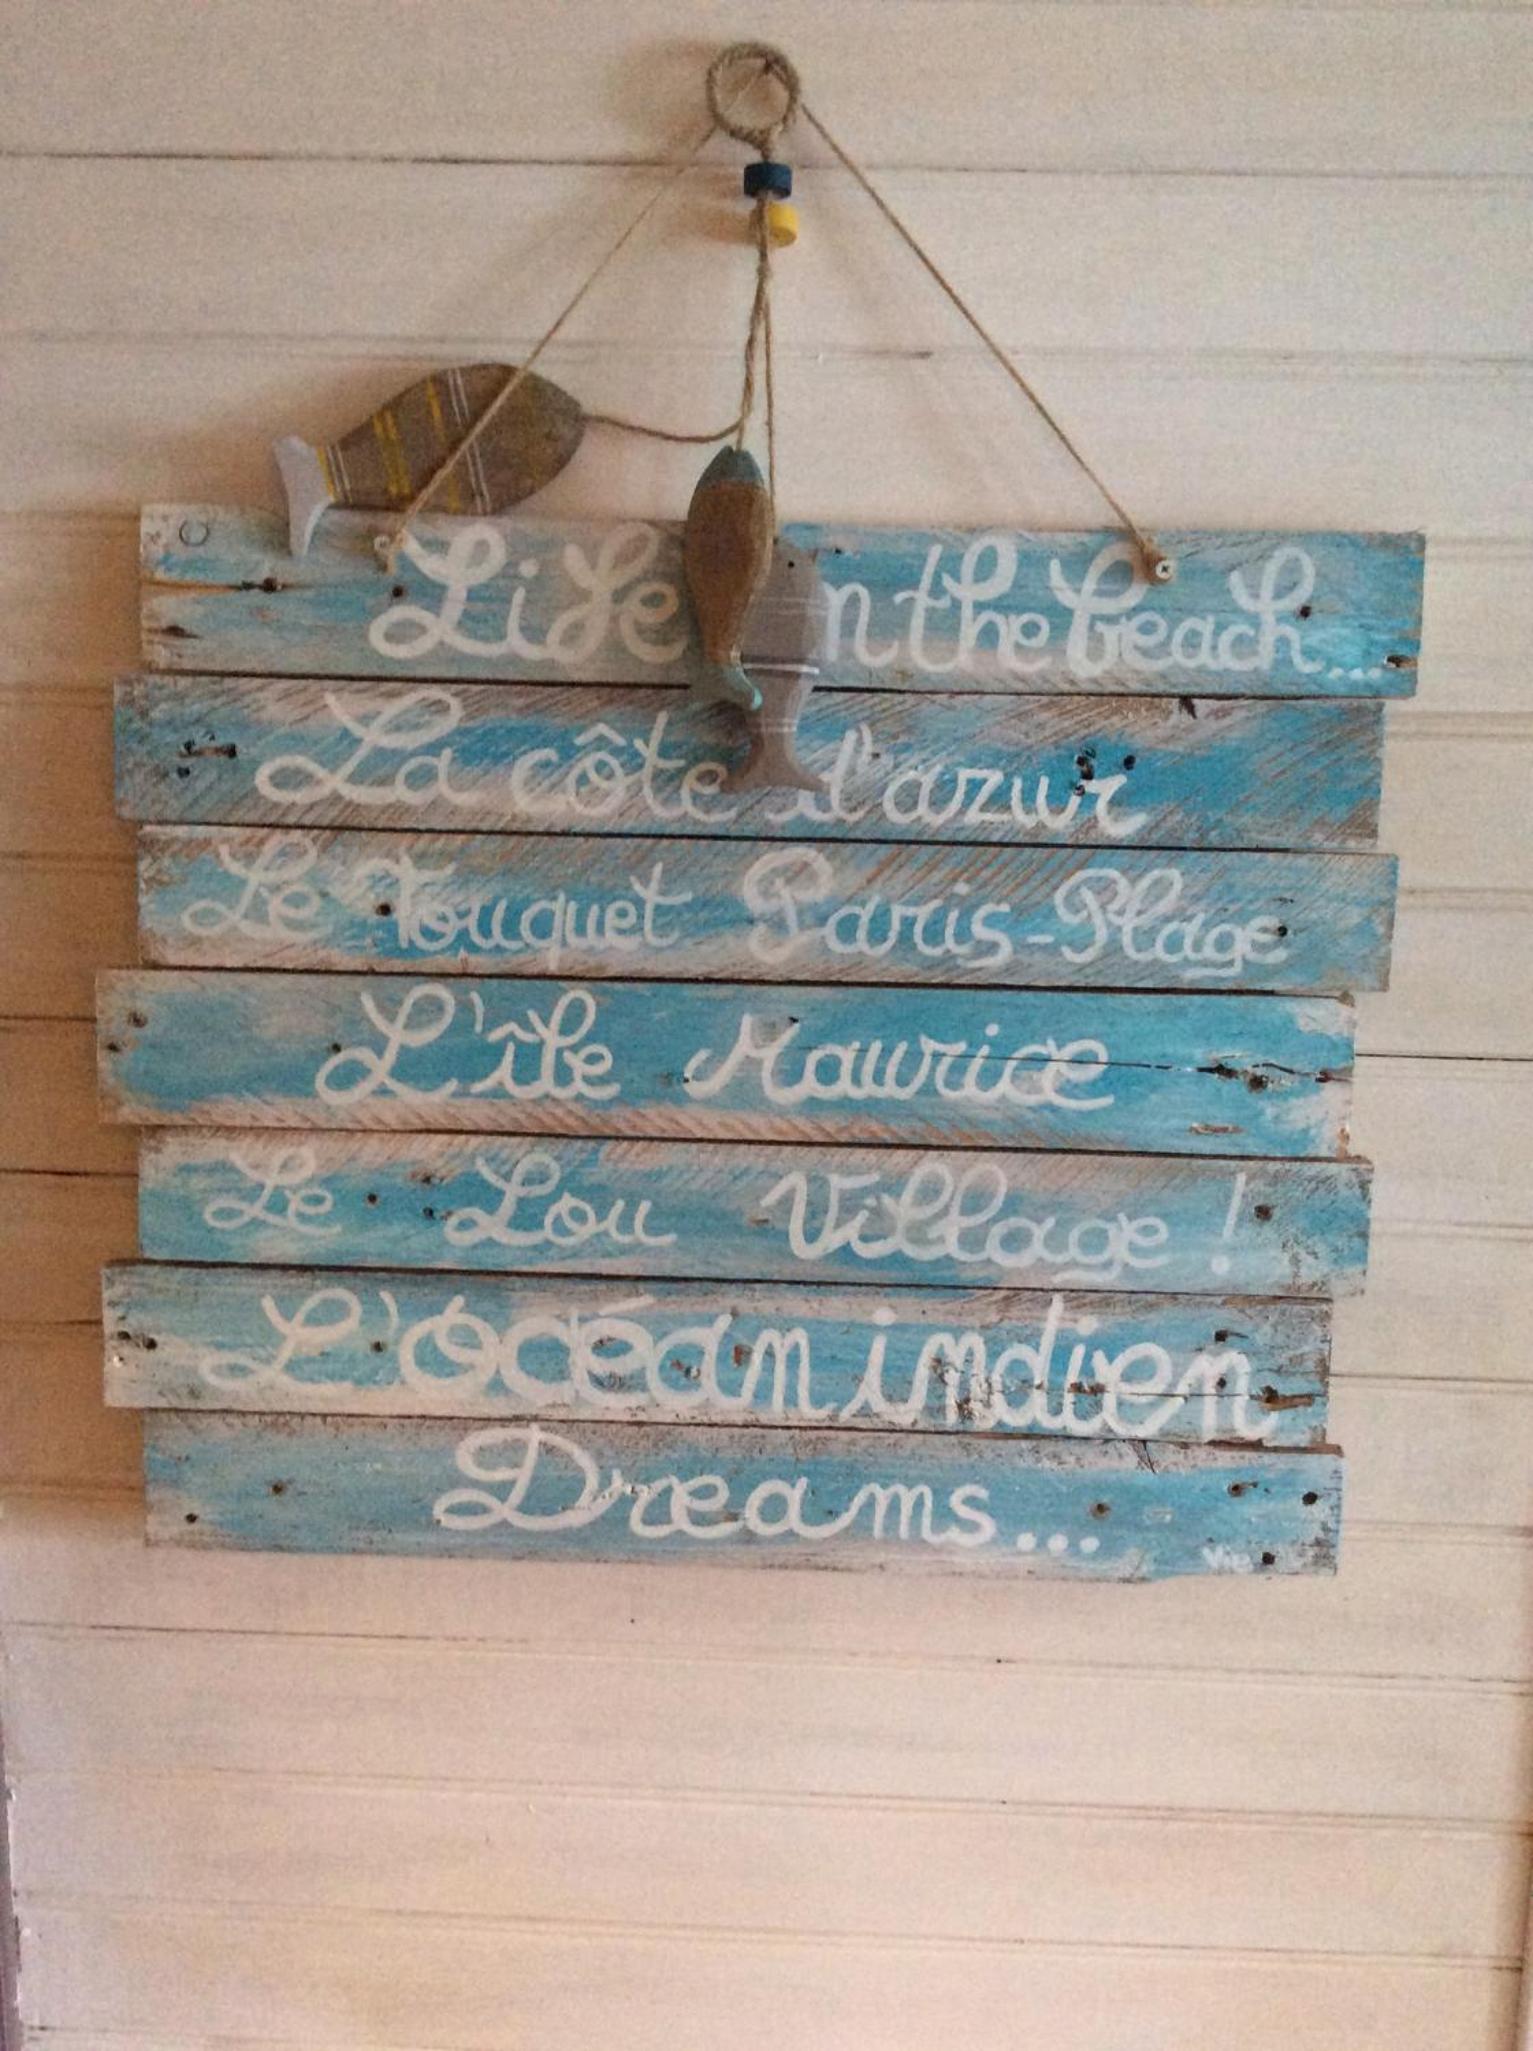 Life n the beach...
La côte d'azur
Le Touquet Paris-Plage
L'île Maurice
Le Lou Village !
L'océan indien
Dreams...